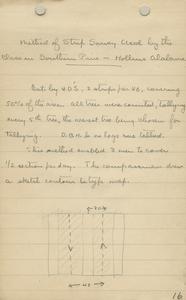 Method of Strip Survey Used by the
Class in Southern Pine - Hollins Alabama
Cut by 40's, 2 strips per 40, covering
50% of the area. All trees were counted, tallying
every 5th tree, the nearest tree being chosen for
tallying. D.B.H. & no logs were tallied.
This method enabled 3 men to cover
1/2 section per day. The compassman drew
a sketch contour & type map.
40
16